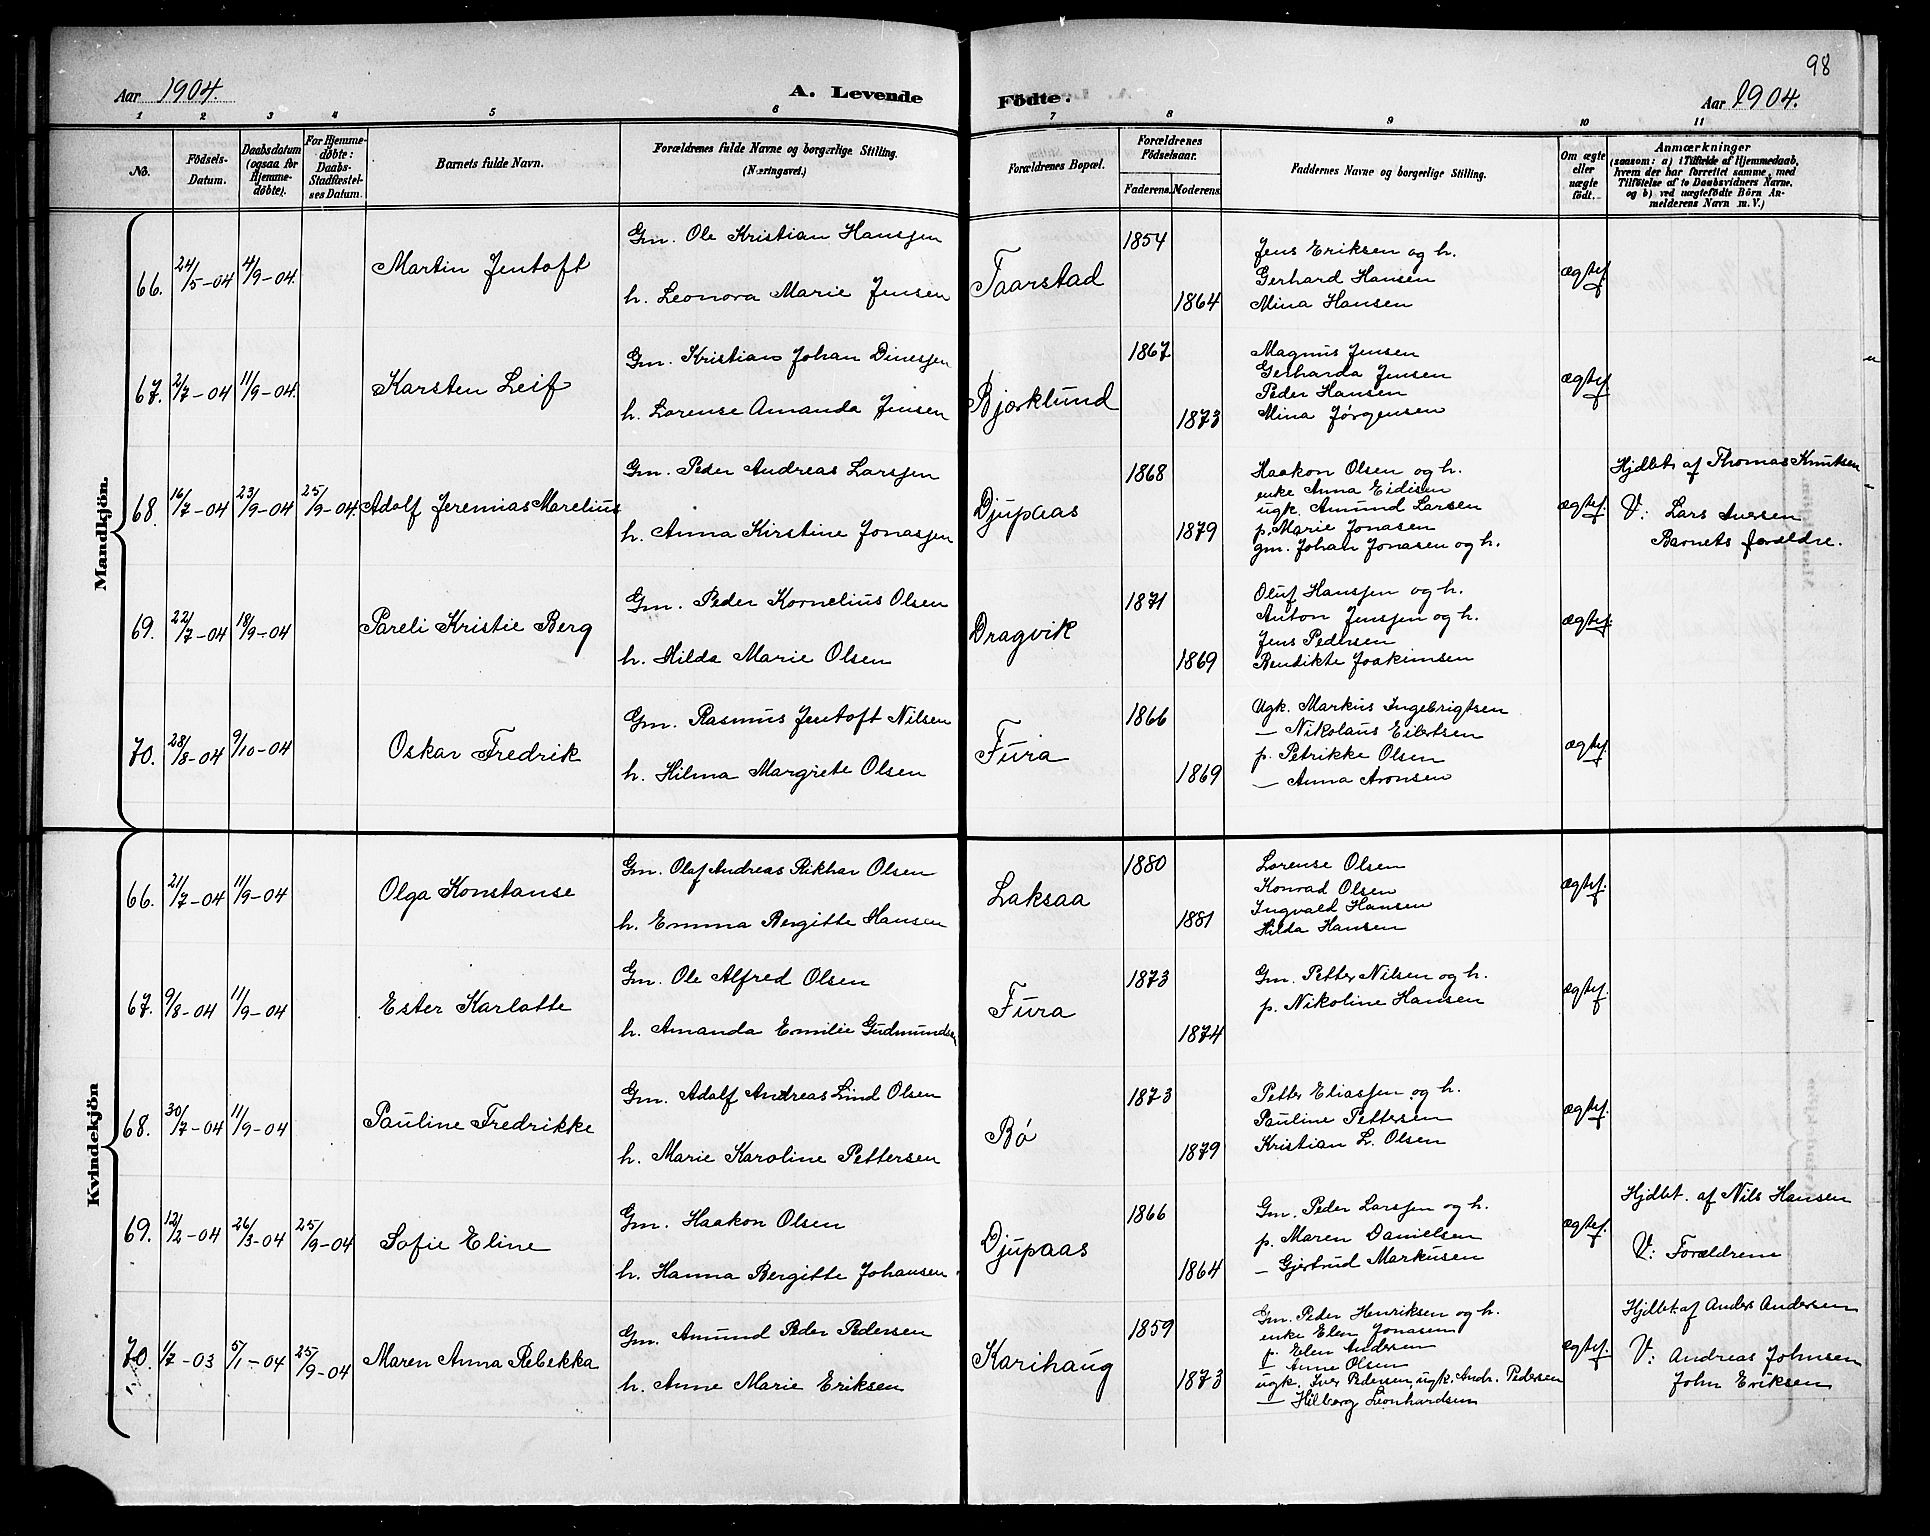 98
Aar 1904.
A. Levende Födte.
Aar 1904.
1 2 3 4 5 6 7 8 9 10 11
No.
Födsels-Datum.
Daabsdatum (ogsaa for Hjemmedöbte).
For Hjemmedöbte: Daabs-Stadfæstelses Datum.
Barnets fulde Navn.
Forældrenes fulde Navne og borgerlige Stilling. (Næringsvei.)
Forældrenes Bopæl.
Forældrenes Födselsaar.
Faderens. Moderens.
Faddernes Navne og borgerlige Stilling.
Om ægte eller uægte födt.
Anmærkninger
(saasom: a) i Tilfælde af Hjemmedaab, hvem der har forrettet samme, med Tilföielse af to Daabsvidners Navne, og b) ved uægtefödte Börn Anmelderens Navn m. V.)
Mandkjön.
66. 24/5-04 4/9-04. Martin Jentoft
Gm. Ole Kristian Hansen
h. Leonora Marie Jensen
Taarstad 1854 1864
Jens Eriksen og h.
Gerhard Hansen
Mina Hansen
ægtef.
67. 2/7-04 11/9-04. Karsten Leif
Gm. Kristian Johan Dinesen
h. Lorense Amanda Jensen
Bjørklund 1867 1873
Magnus Jensen
Gerharda Jensen
Peder Hansen
Mina Jørgensen
ægtef.
68. 16/7-04 23/9-04 25/9-04. Adolf Jeremias Marelius
Gm. Peder Andreas Larsen
h. Anna Kirstine Jonassen
Djupaas 1868 1879
Haakon Olsen og h.
enke Anna Eidisen
ugk. Amund Larsen
p. Marie Jonasen
gm. Johan Jonasen og h.
ægtef.
Hjdbt. af Thomas Knutsen
V: Lars Iversen
Barnets forældre.
69. 22/7-04 18/9-04 Pareli Kristie Berg
Gm. Peder Kornelius Olsen
h. Hilda Marie Olsen
Dragvik 1871 1869
Oluf Hansen og h.
Anton Jensen og h.
Jens Pedersen
Bendikte Joakimsen
ægtef.
70. 28/8-04 9/10-04 Oskar Fredrik
Gm. Rasmus Jentoft Nilsen
h. Hilma Margrete Olsen
Fura 1866 1869
Ugk. Markus Ingebrigtsen
— Nikolaus Eilertsen
p. Petrikke Olsen
— Anna Aronsen
ægtef.
Kvindekjön
66. 21/7-04 11/9-04 Olga Konstanse
Gm. Olaf Andreas Rikhar Olsen
h. Emma Bergitte Hansen
Laksaa 1880 1881
Lorense Olsen
Konrad Olsen
Ingvald Hansen
Hilda Hansen
ægtef.
67. 9/8-04 11/9-04 Ester Karlotte
Gm. Ole Alfred Olsen
h. Amanda Emilie Gudmundsen
Fura 1873 1874
Gm. Petter Nilsen og h.
p. Nikoline Hansen
ægtef.
68. 30/7-04 11/9-04 Pauline Fredrikke
Gm. Adolf Andreas Lind Olsen
h. Marie Karoline Pettersen
Bø 1873 1879
Petter Eliassen og h.
Pauline Pettersen
Kristian L. Olsen
ægtef.
69. 12/2-04 26/3-04 25/9-04 Sofie Eline
Gm. Haakon Olsen
h. Hanna Bergitte Johansen.
Djupaas 1866 1864
Gm. Peder Larsen og h.
p. Maren Danielsen
— Gjertrud Markusen
ægtef.
Hjdbt. af Nils Hansen
V: Forældrene
70. 1/7-03 5/1-04 25/9-04 Maren Anna Rebekka
Gm. Amund Peder Pedersen
h. Anne Marie Eriksen
Karihaug 1859 1873
Gm. Peder Henriksen og h.
enke Elen Jonasen
p. Elen Andersen
— Anne Olsen
ugk. Iver Pedersen, ugk. Andr. Pedersen
— Hilberg Leonhardsen
ægtef.
Hjdbt. af Anders Andersen
V: Andreas Johnsen
John Eriksen